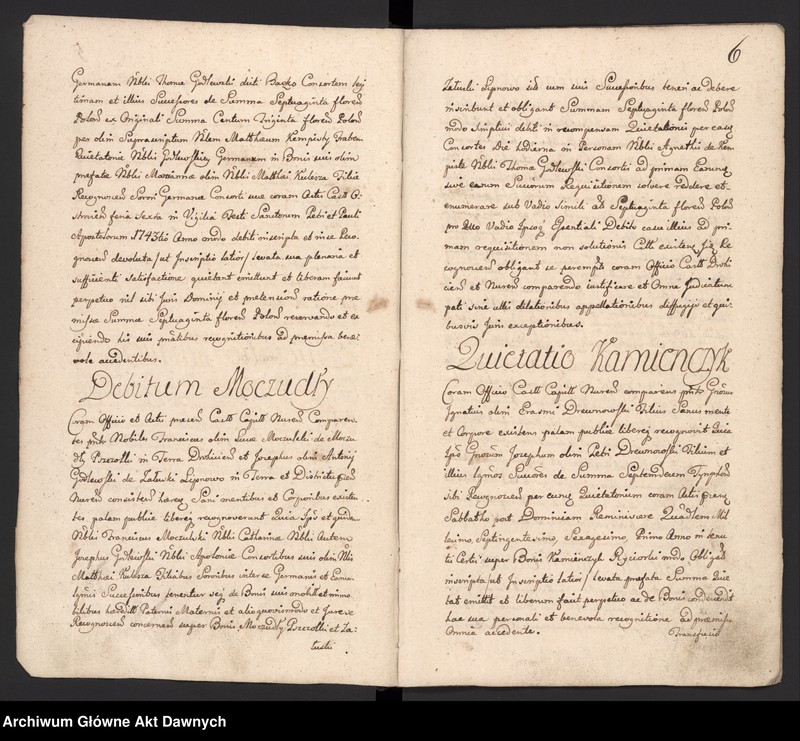 Germanam Nbli Thomæ Godlewski dicti Baczko Consortem legi
timam et illius Successores de Summa Septuaginta floren
Polon ex Originali Summa Centum Triginta floren Polon
per olim Suprascriptum Nblem Matthæum Kempisty
Quietatione Nblis Godlewskiej Germanæ in Bonis suis olim
prefatæ Nblis Mariannæ olim Nblis Matthæi Kulesza Filiæ
Recognoscen Sorori Germanæ Consorti suæ coram Actis Castr
feria Sexta in Vigilia Festi Sanctorum Petri et Pauli
Apostolorum 1743tio Anno modo debiti inscripta et in se Reco-
gnoscen devoluta, ut Inscriptio latior, levata sua plenaria et
sufficienti satisfactione quietant emittunt et liberam faciunt
perpetuo nil sibi Juris Dominij et pretensionis ratione præ
missæ Summæ Septuaginta floren Polon reservando et ex
cipiendo his suis pntibus recognitionibus ad præmissa bene
vole accedentibus.
Debitum Moczudły
Coram Officio et Actis præsen Castr Capitt Nuren Comparen
tes pnter Nobiles Franciscus olim Moczulski de Moczu
dły Pszczolki in Terra Drohicien et Josephus olim Antonij
Godlewski de Załuski Lipnowo in Terra et Districtu
Nuren consisten hæres Sani mentibus et Corporibus existen
tes palam publice libereq recognoverunt Quia Ipsi et quidem
Nblis Franciscus Moczulski Nblis Catharinæ Nblis Autem
Josephus Godlewski Nblis Apoloniæ Consortibus suis olim Nblis
Matthæi Kulesza Filiabus Sororibus inter se Germanis et Earum
lgmis Successoribus tenentur seq de Bonis suis mobilibus et immo
bilibus hæreditt Paternis Maternis et alio quovismodo et Jure se
Recognoscen concernen super Bonis Moczudły Pszczolki et Za=
łuski
6
Załuski Lipnowo iisd cum suis Successoribus teneri ac debere
inscribunt et obligant Summam Septuaginta floren Polon
modo simplicis debiti in recompensam Quietationis per easq
Consortes De hodierna in Personam Nblis Agnethis de Kem
piste Nblis Thomæ Godlewski Consortis ad primam Earunq
sive earum Succorum Requisitionem solvere reddere et
enumerare sub Vadio simili Septuaginta floren Polon
pro Quo Vadio Ipsoq Essentiali Debito casu illius ad pri
mam requisitionem non solutionis Citti existen Jidem Re
cognoscen obligant se peremptie coram Officio Castr Drohi
cien et Nuren comparendo justificare et Omne Judicatum
pati sine ulli dilationibus appellationibus diffugijs et qui
busvis Juris exceptionibus.
Quietatio Kamieńczyk
Coram Officio Castr Capitt Nuren comparens pnter Gnosus
Ignatius olim Erasmi Drewnowski Filius Sanus mente
et Corpore existens palam publice libereq recognovit Quia
Ipse Gnosum Josephum olim Petri Drewnowski Filium et
illius lgmos Succores de Summa Septemdecem Tynphon
sibi Recognoscen per eunq Quietatorium coram Actis
Sabbatho post Dominicam Reminiscere Quadlem Mil
lesimo, Septingentesimo, Sexagesimo, Primo Anno in
super Bonis Kamieńczyk Ryciorki modo Obligato
inscripta ut Inscriptio latior, levata prafata Summa Quie
tat emittit et liberum facit perpetuo ac de Bonis condescendit
hac sua personali et benevola recognitione ad præmissa
Omnia accedente.
Transfusio
Archiwum Główne Akt Dawnych